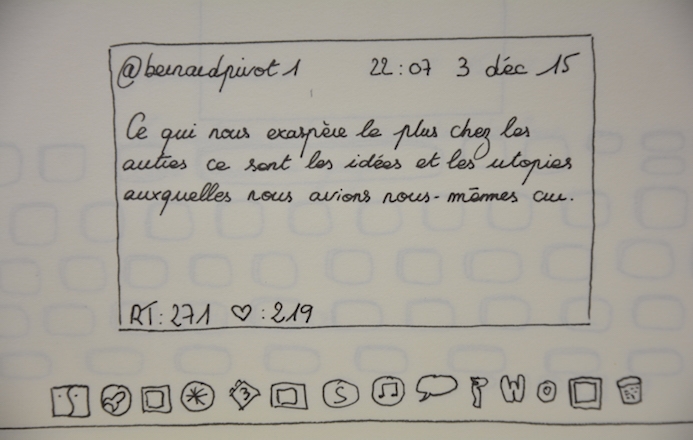 @bernardpivot1 22:07 3 déc 15
Ce qui nous exaspère le plus chez les
autres ce sont les idées et les utopies
auxquelles nous avions nous-mêmes cru.
RT: 271 ♡: 219
3 S W